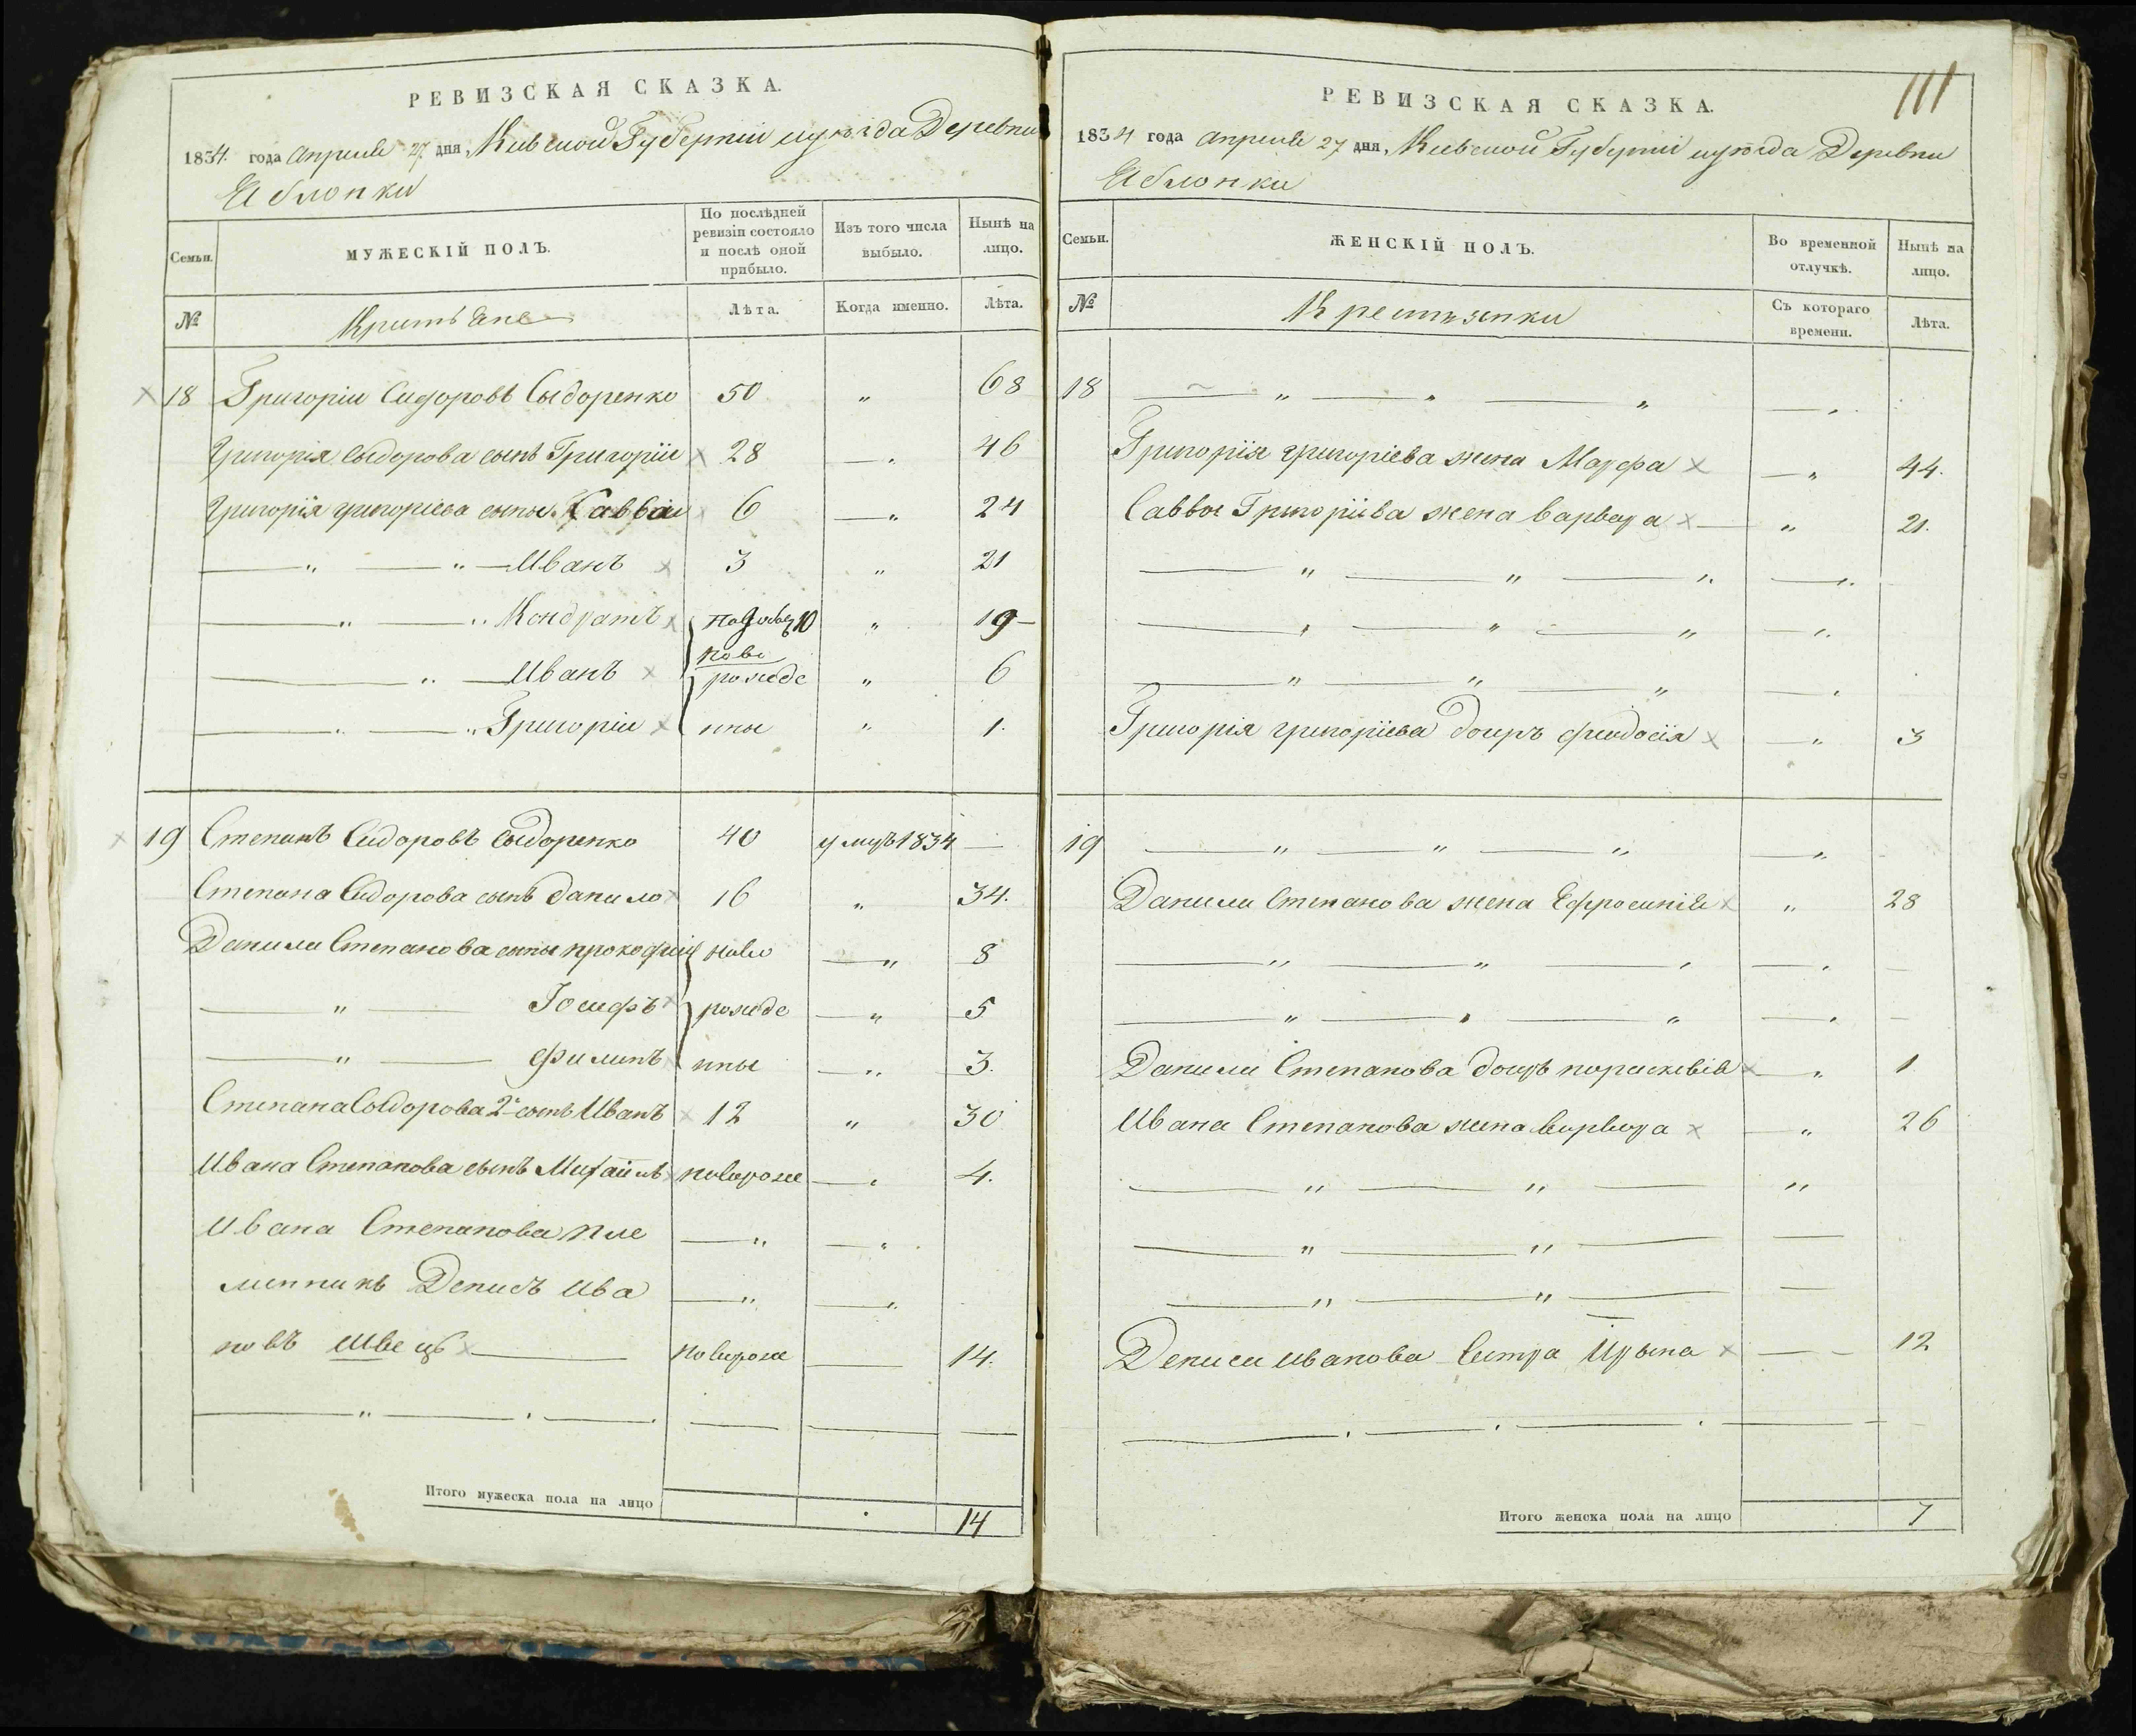 РЕВИЗСКАЯ СКАЗКА.
1834. года Апреля 27 дня, Киевской Губерніи и уѣзда Деревни
Яблонки
Семьи.
МУЖЕСКІЙ ПОЛЪ.
По послѣдней ревизіи состояло и послѣ оной прибыло.
Изъ того числа выбыло.
Нынѣ на лицо.
№
Лѣта.
Когда именно.
Лѣта.
18 Григоріи Сидоровъ Сыдоренко 50 „ 68
Григорія Сыдорова сынъ Григоріи 28 — „ 46
Григорія григоріева сыны Савва 6 — „ 24
— „ — „ — Иванъ 3 „ 21
— „ — „ Кондратъ 10 „ 19
— „ — Иванъ ново рожде „ 6
— „ — „ Григоріи нны „ 1.
19 Степанъ Сидоровъ Сыдоренко 40 умеръ 1834 —
Степана Сидорова сынъ данило 16 „ 34.
Данила Степанова сыны прокофій ново — „ 8
— „ — Іосифъ рожде — „ 5
— „ — Филипъ нны — „ 3.
Степана Сыдорова 2й сынъ Иванъ 12 „ 30
Ивана Степанова сынъ Михаилъ новорож — „ 4.
Ивана Степанова пле — „ — „
менникъ Денисъ Ива — „ — „
новъ Швецъ — новорож — 14.
— „ — „ — . — — —
Итого мужеска пола на лицо 14
РЕВИЗСКАЯ СКАЗКА.
111
1834 года Апреля 27 дня, Киевской Губерніи и уѣзда Деревни
Яблонки
Семьи.
ЖЕНСКІЙ ПОЛЪ.
Во временной отлучкѣ.
Нынѣ на лицо.
№
Крестьянки
Съ котораго времени.
Лѣта.
18 — „ — „ — „ — „
Григорія григоріева жена Марфа — „ 44.
Саввы Григоріева жена варвара — „ 21.
— „ — „ — „ — „
— „ — „ — „ — „
— „ — „ — „ — „
Григорія григоріева дочръ феодосія — „ 3
19 — „ — „ — „ — „
Данила Степанова жена Ефросинія „ 28
— „ — „ — „ — „ —
— „ — „ — „ — „ —
Данила Степанова дочръ параскевія — „ 1
Ивана Степанова жена варвара — „ 26
— „ — „ — „
— „ — „ — —
— „ — „ — —
Дениса иванова Сестра Ирына — — 12
— „ — „ — „ —
Итого женска пола на лицо 7